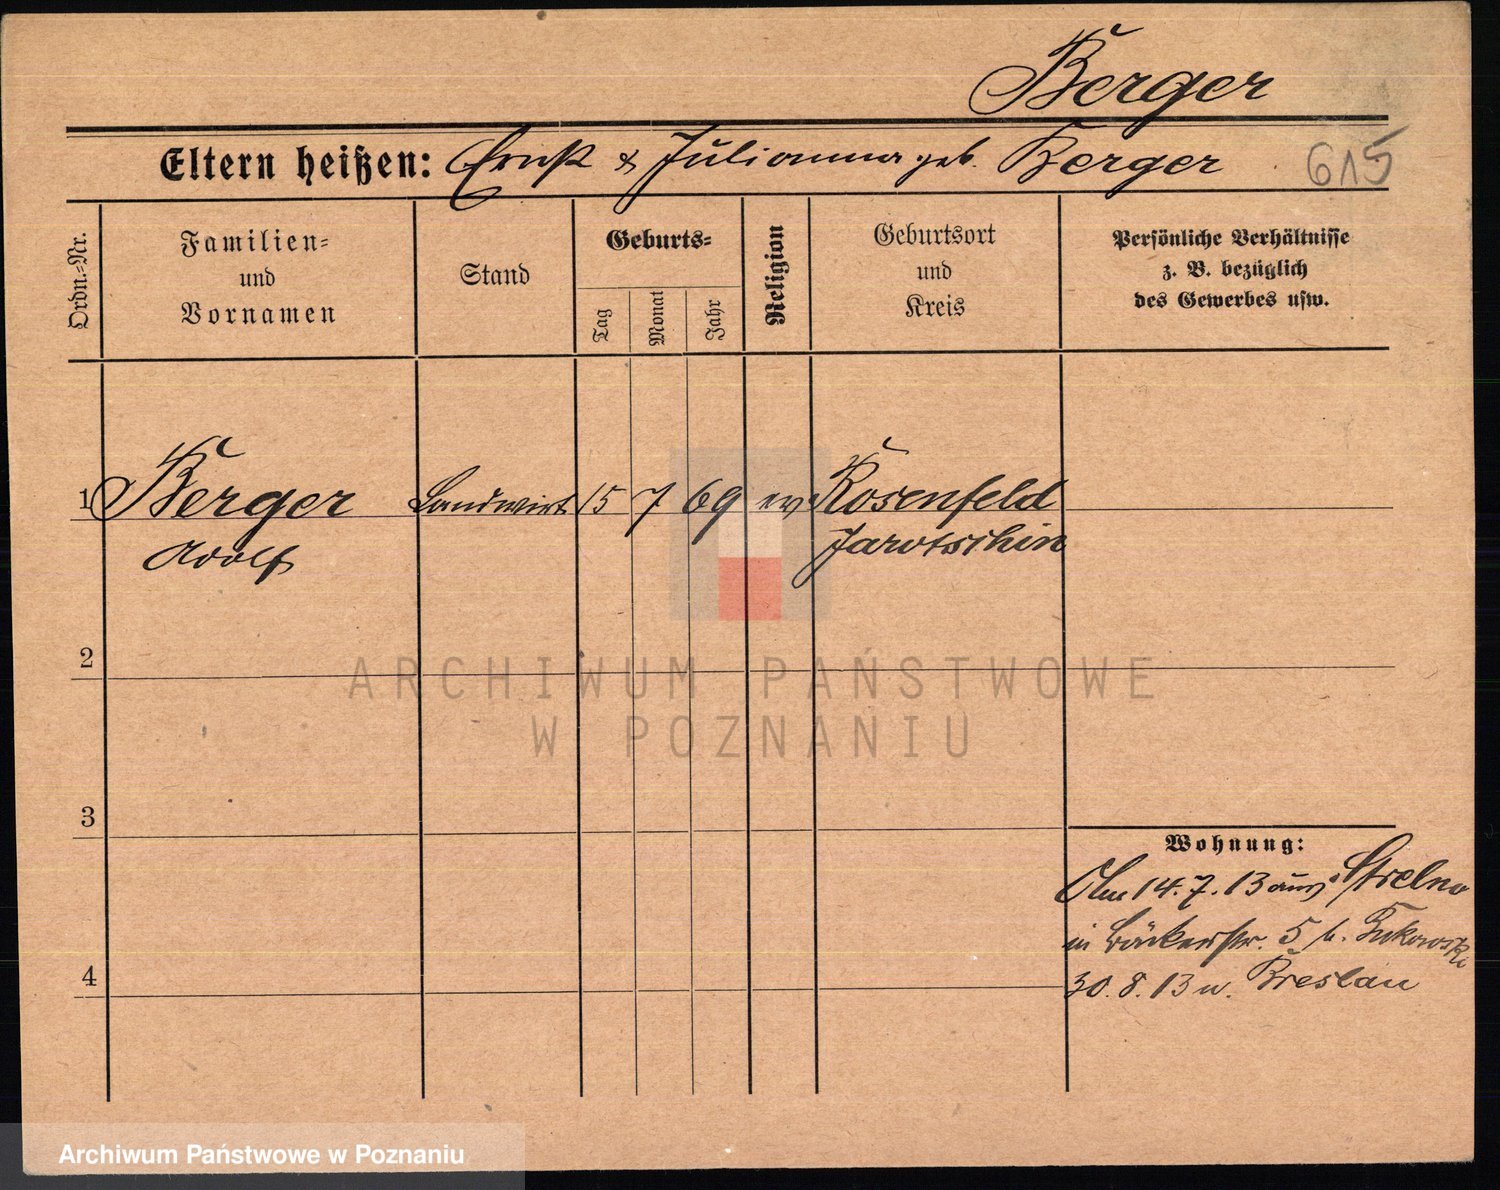 Berger
Eltern heißen: Ernst & Julianna geb. Berger 615
Ordn.-Nr.
Familien-
und
Vornamen
Stand
Geburts-
Tag
Monat
Jahr
Religion
Geburtsort
und
Kreis
Persönliche Verhältnisse
z. B. bezüglich
des Gewerbes usw.
1 Berger Landwirt 15 7 69 ev. Rosenfeld
Adolf Jarotschin
2
ARCHIWUM PAŃSTWOWE
W POZNANIU
3
Wohnung:
Am 14.7.13 aus Strelno
in Bäckerstr. 5 b.
4
30.8.13 n. Breslau
Archiwum Państwowe w Poznaniu